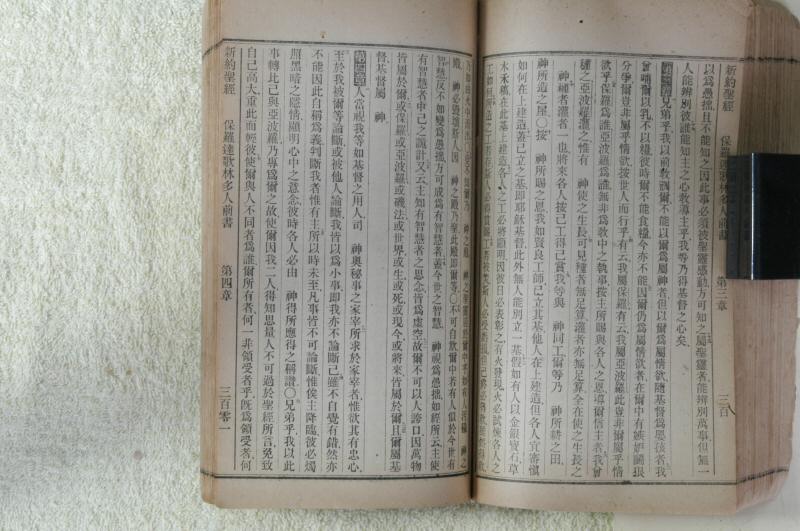 新約聖經　保羅達歌林多人前書　第三章　三百
以爲愚拙且不能知之因此事必須被聖靈感動方可知之屬聖靈者能辨別萬事但無一
人能辨別彼誰能知主之心敎導主乎我等乃得基督之心矣
第三章兄弟乎我以前敎誨爾不能以爾爲屬神者但以爾爲屬情欲隨基督爲嬰孩者我
曾哺爾以乳不以糧彼時爾不能食糧今亦不能因爾仍爲屬情欲者在爾中有嫉妬鬬狠
分爭爾豈非屬乎情欲按世人而行乎有云我屬保羅有云我屬亞波羅此豈非爾屬乎情
欲乎保羅爲誰亞波羅爲誰無非爲敎中之執事按主所賜與各人之恩導爾信主者我曾
種之亞波羅灌之惟有　神使之生長可見種者無足算灌者亦無足算全在使之生長之
神種者灌者一也將來各人按己工得己賞我等與　神同工爾等乃　神所耕之田
神所造之屋〇按　神所賜之恩我如賢良工師已立其基他人在上建造但各人宜審愼
如何在上建造蓋已立之基即耶穌基督此外無人能別立一基假如有人以金銀寶石草
木禾稿在此基上建造各人之工必將顯明因彼日必表彰之有火發現火必試煉各人之
殿　神必毀壞斯人因　神之殿乃聖此殿即爾等〇不可自欺爾中若有人似於今世有
智慧反不如變爲愚拙方可成爲有智慧者蓋今世之智慧　神視爲愚拙如經所云主使
有智慧者中己之詭計又云主知有智慧者之思念皆爲虛空故爾不可以人誇口因萬物
皆屬於爾或保羅或亞波羅或磯法或世界或生或死或現今或將來皆屬於爾且爾屬基
督基督屬　神
第四章人當視我等如基督之用人司　神奧秘事之家宰所求於家宰者惟欲其有忠心
至於我被爾等論斷或被他人論斷我皆以爲小事即我亦不論斷己雖不自覺有錯然亦
不能因此自稱爲義判斷我者惟有主所以時未至凡事皆不可論斷惟俟主降臨彼必燭
照黑暗之隱情顯明心中之意念彼時各人必由　神得所應得之稱讚〇兄弟乎我以此
事轉比己與亞波羅乃專爲爾之故使爾因我二人得知思量人不可過於聖經所言免致
自己高大重此而輕彼使爾與人不同者爲誰爾所有者何一非領受者乎旣爲領受者何
新約聖經　保羅達歌林多人前書　第四章　三百零一